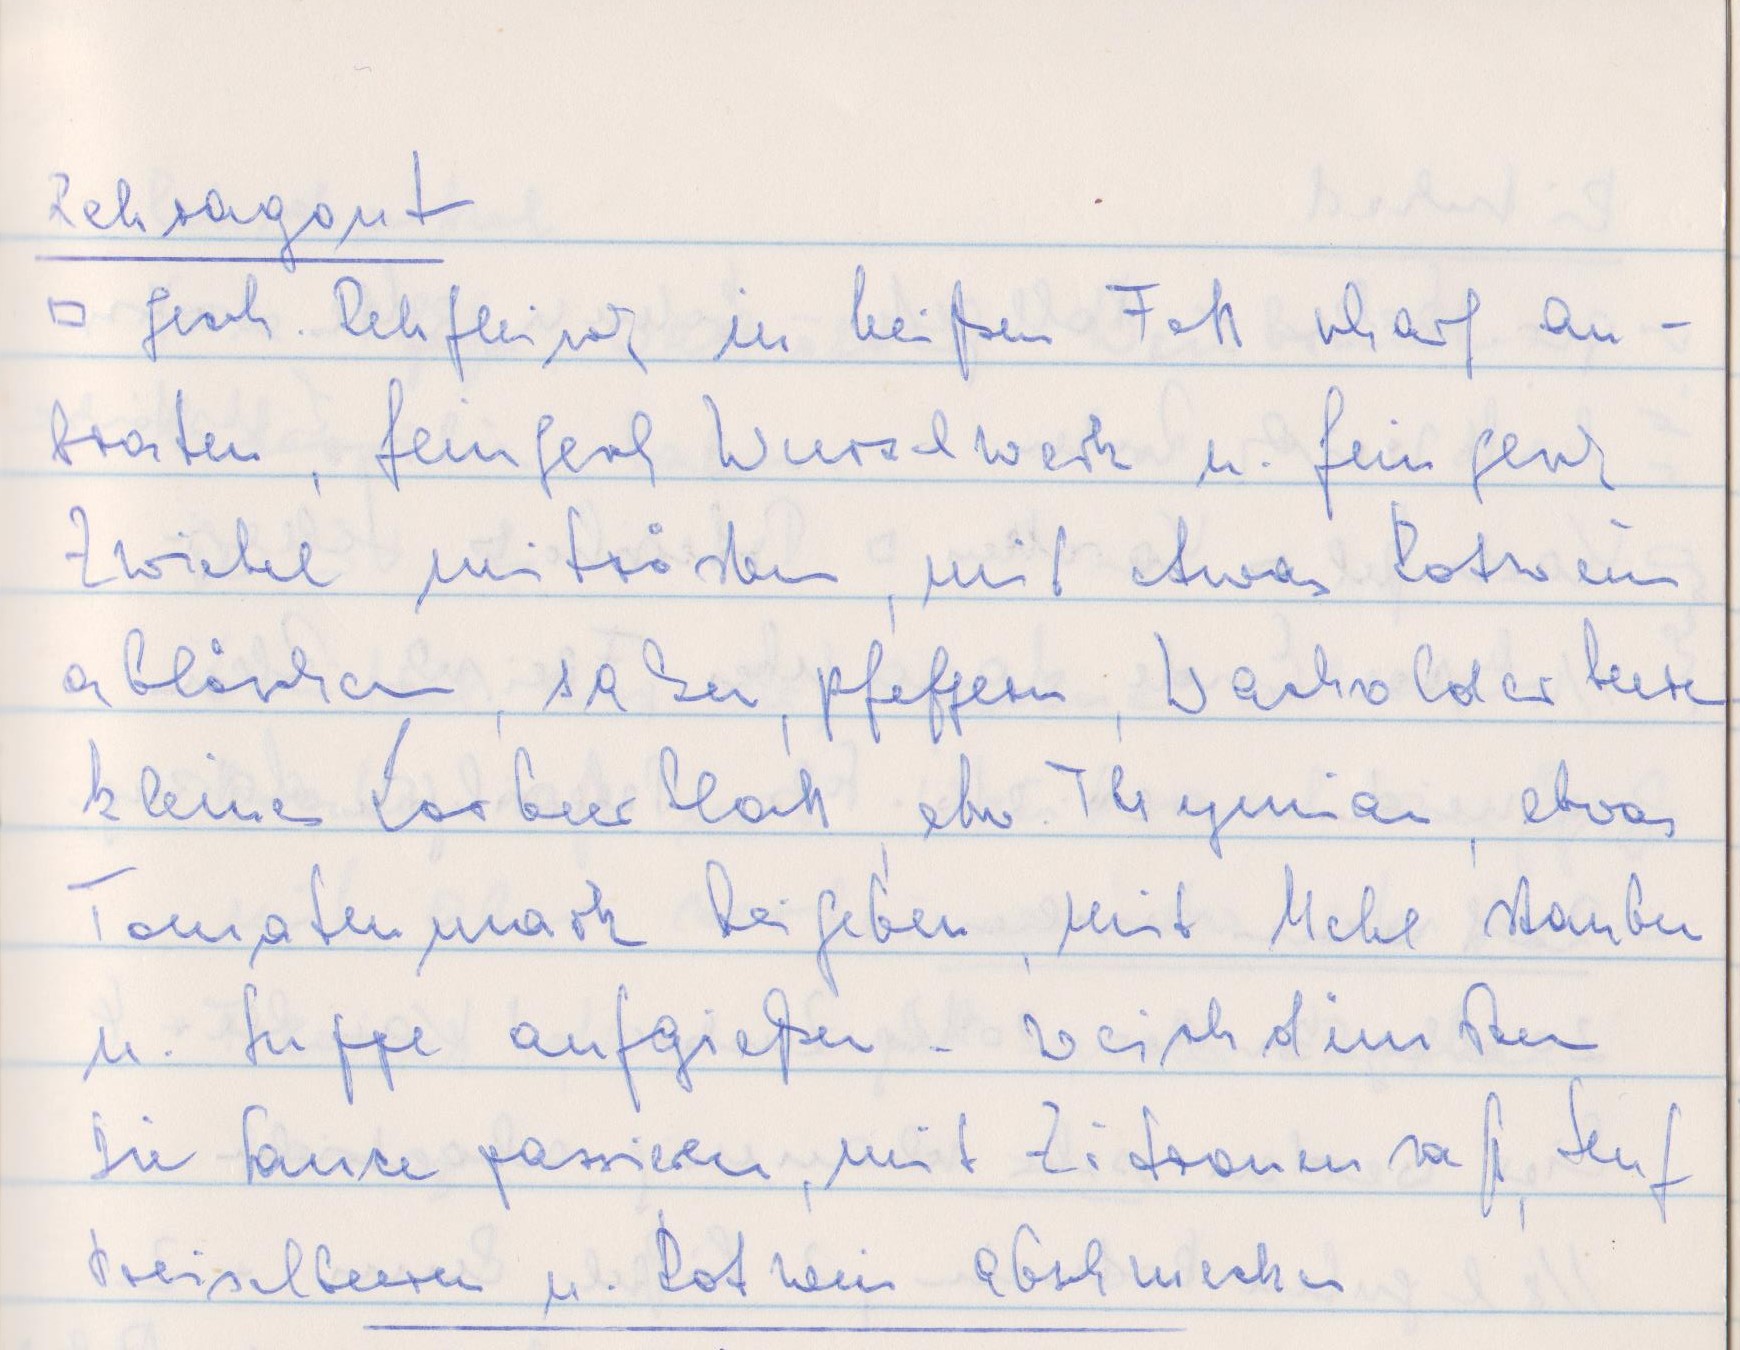 Rehragout
□ gesch. Rehfleisch in heißem Fett scharf an-
braten, feingesch Wurzelwerk u. feingesch
Zwiebel mitrösten, mit etwas Rotwein
ablöschen, salzen, pfeffern, Wacholderbeere
kleines Lorbeerblatt, etw. Thymian, etwas
Tomatenmark beigeben, mit Mehl stauben
u. Suppe aufgießen - weichdünsten
Die Sauce passieren, mit Zitronensaft, Senf
Preiselbeeren u. Rotwein abschmecken